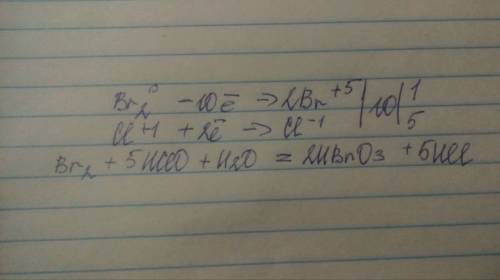 Br₂⁰ -10ē → 2Br⁺⁵ |10| 1
Cl⁺¹ +2ē → Cl⁻¹ 5
Br₂ + 5HClO + H₂O = 2HBrO₃ + 5HCl